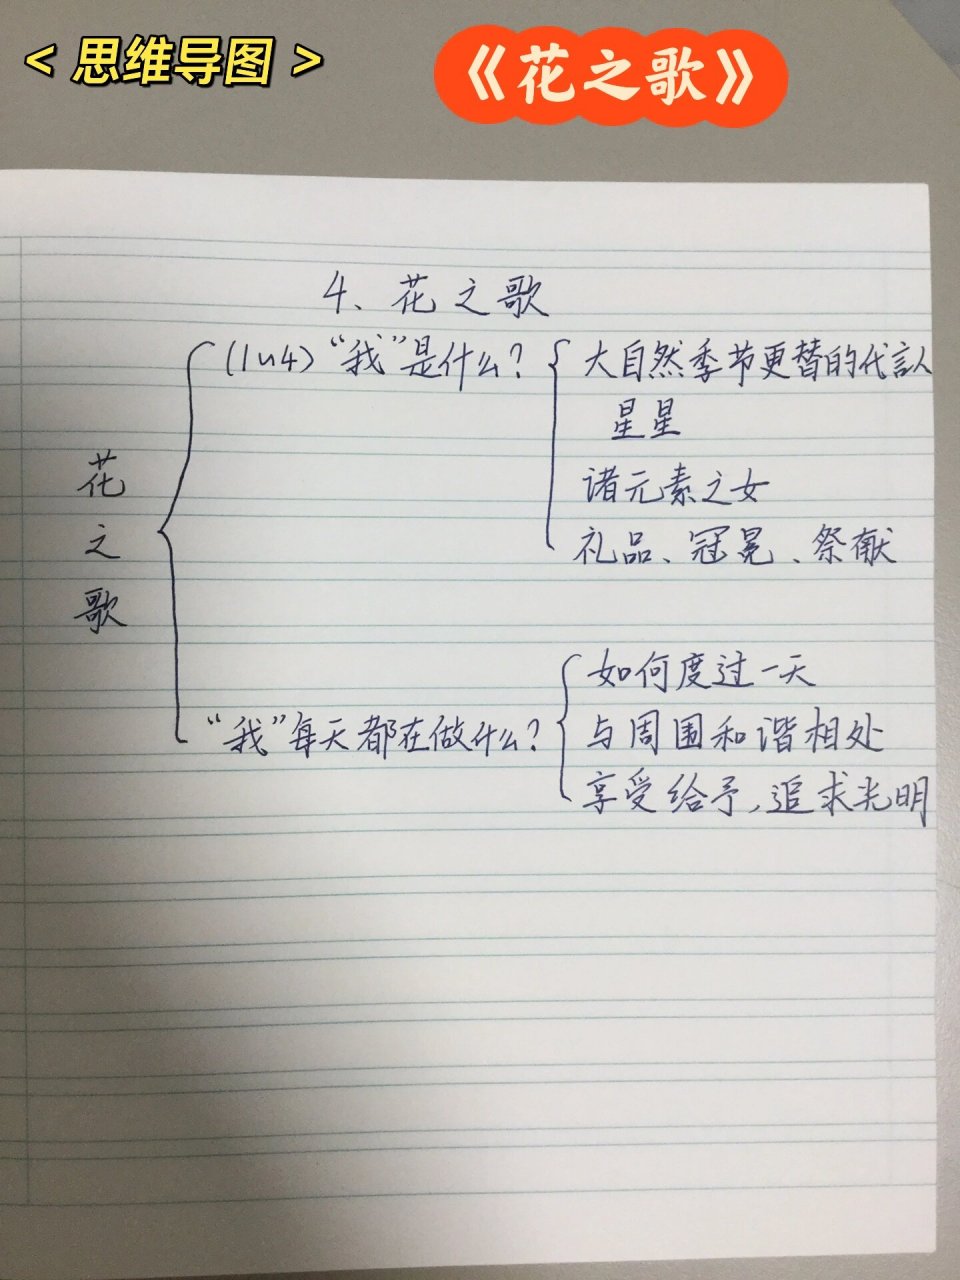 < 思维导图 >
《花之歌》
4、花之歌
花之歌
(1~4) “我”是什么?
大自然季节更替的代言人
星星
诸元素之女
礼品、冠冕、祭献
“我”每天都在做什么?
如何度过一天
与周围和谐相处
享受给予,追求光明